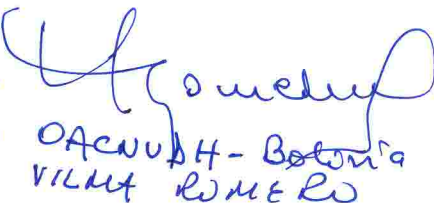 OACNUDH - Bolivia
VILMA ROMERO